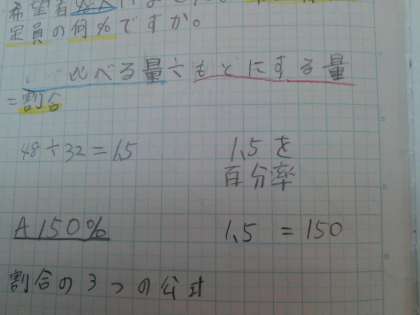 希望者
定員の何%ですか。
くらべる量÷もとにする量
=割合
48÷32=1.5
1.5を
百分率
A150%
1.5 = 150
割合の3つの公式